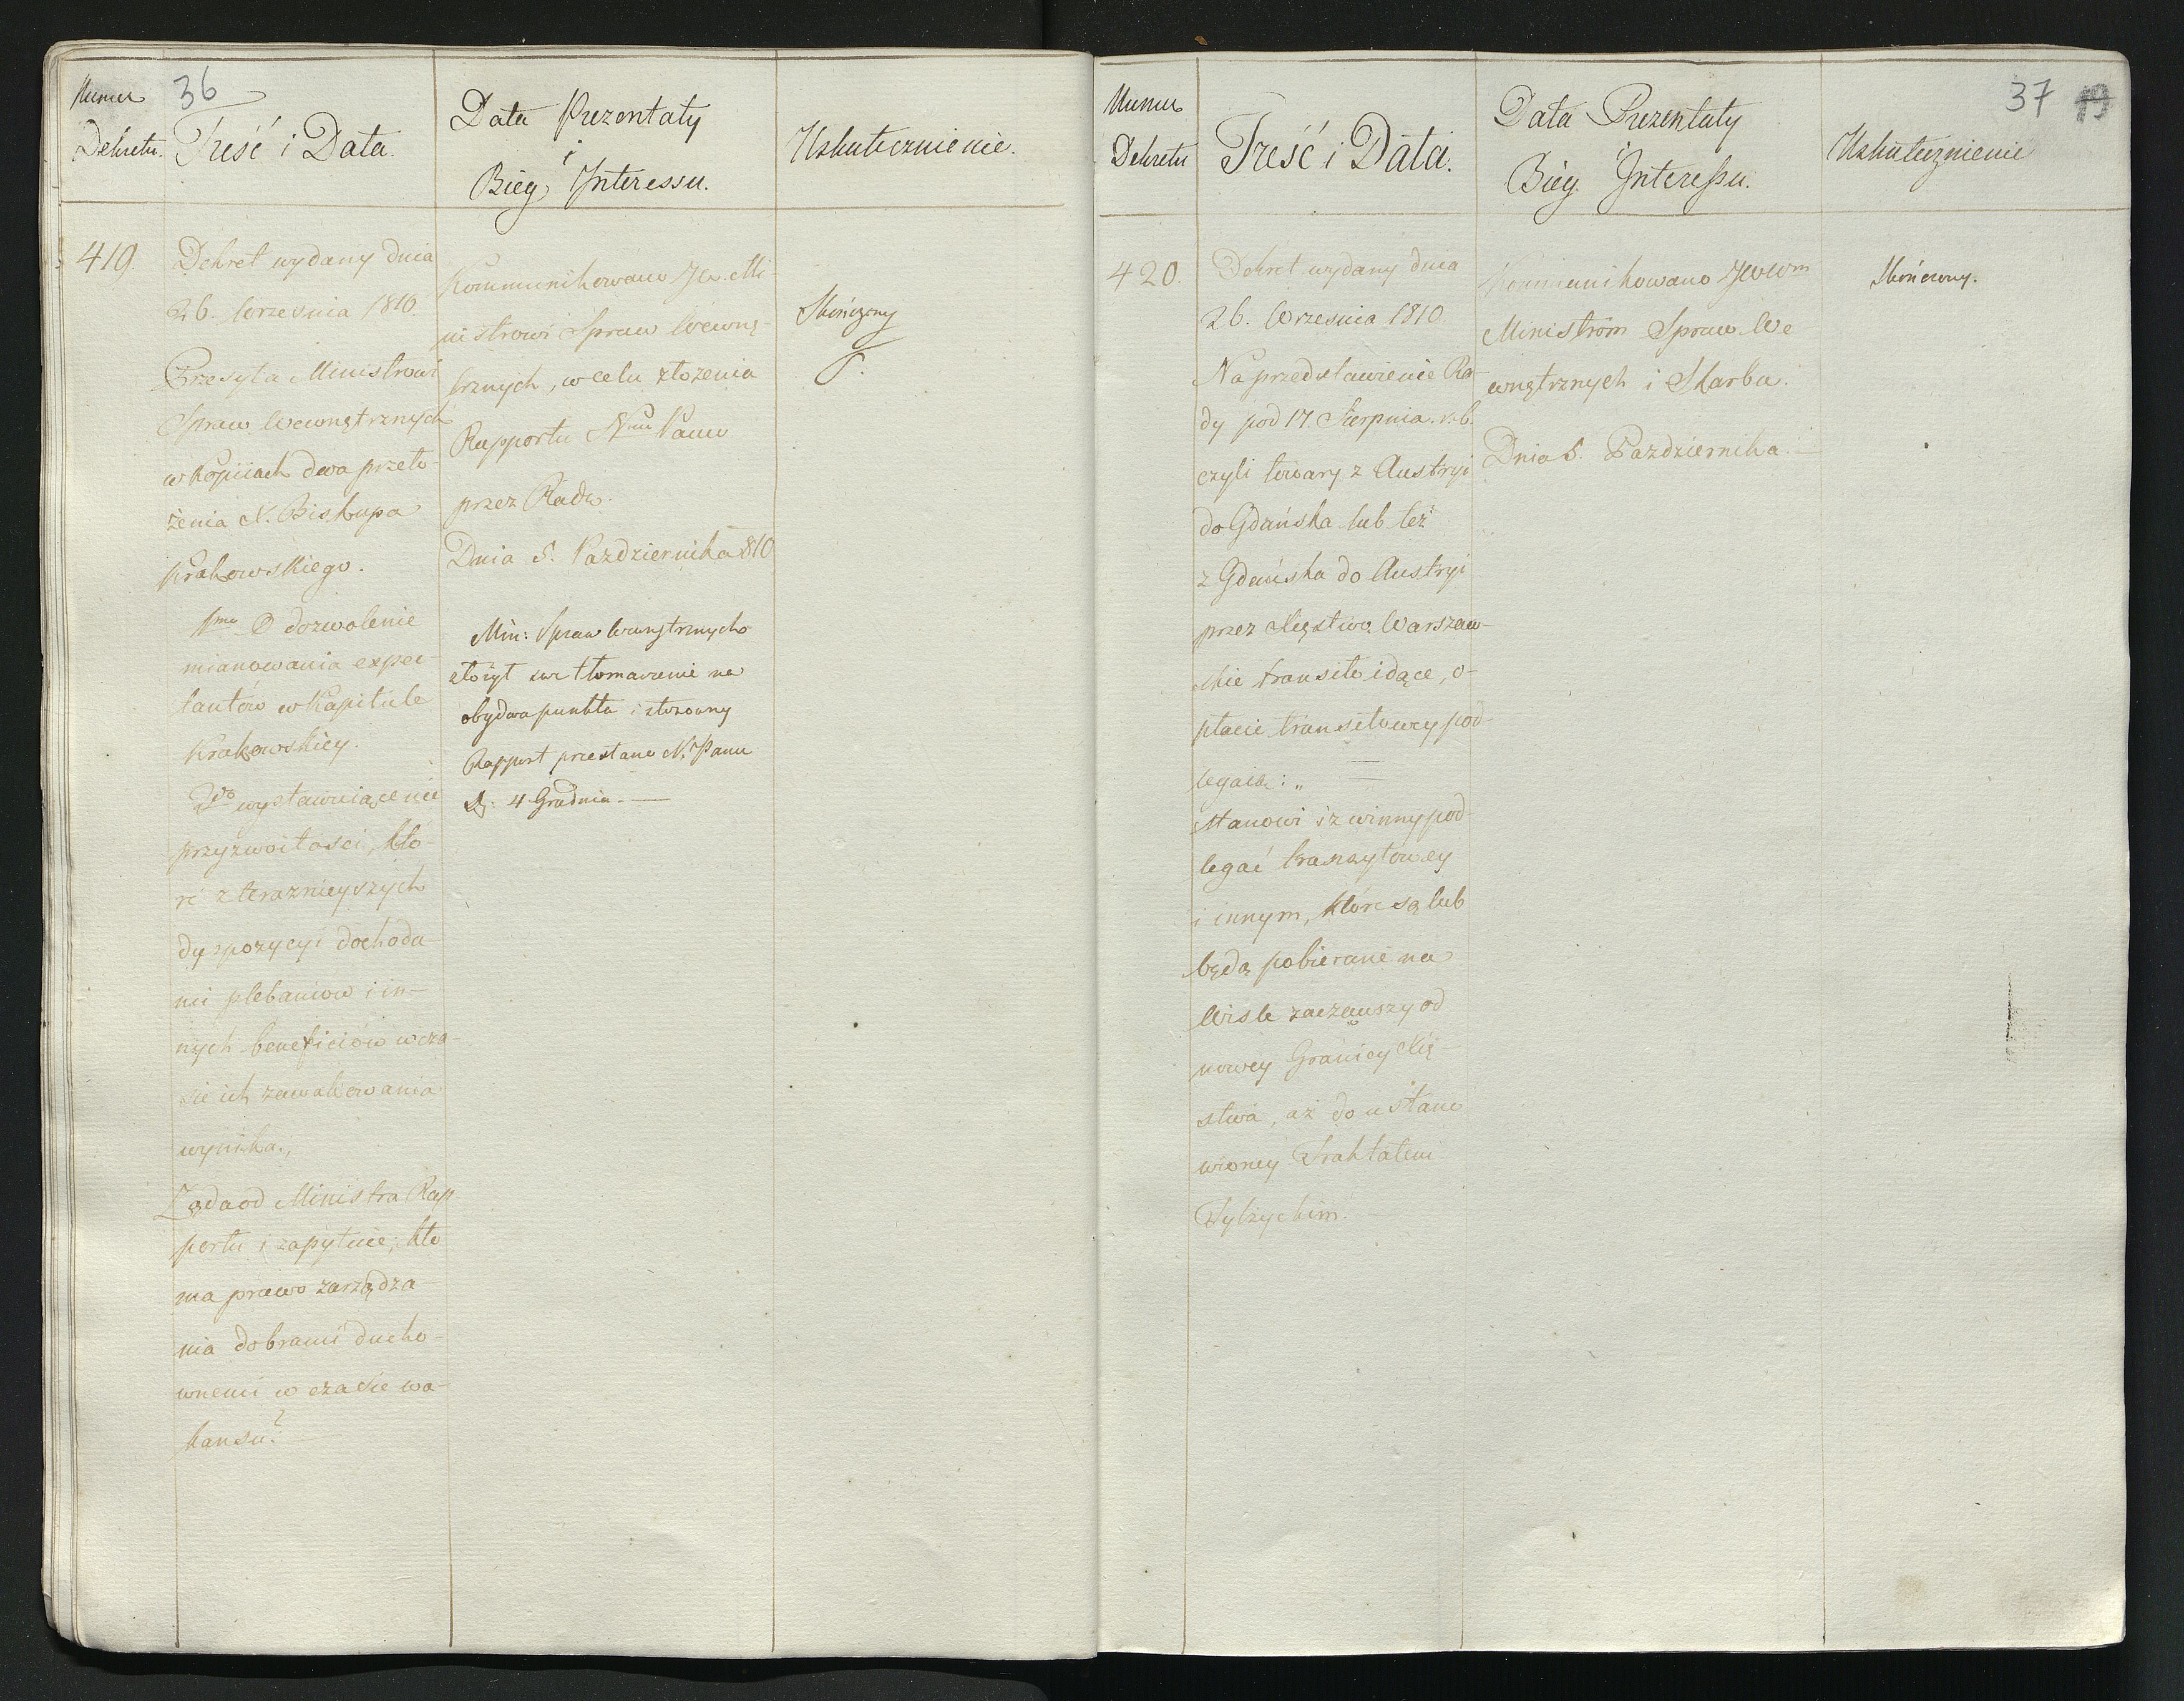 36
Numer
Dekretu.
Treść i Data.
Data Prezentaty
i
Bieg Interessu.
Uskutecznienie.
419.
Dekret wydany dnia
26. Września 1810.
Przesyła Ministrowi
Spraw Wewnętrznych
w kopiiach dwa przeło-
żenia X. Biskupa
Krakowskiego.
1mo O dozwolenie
mianowania expec-
tantów w Kapitule
Krakowskiey.
2do wystawuiące nie
przyzwoitości, któ-
re z teraznieyszych
dyspozycyi dochoda-
mi plebaniow i in-
nych beneficiów w cza-
sie ich zawakowania
wynika.,
Żąda od Ministra Rap
portu i zapytuie; kto
ma prawo zarządza-
nia dobrami ducho-
wnemi w czasie wa-
kansu?
Kommunikowano JW. Mi-
nistrowi Spraw Wewnę-
trznych, w celu złożenia
Rapportu Nmu Panu
przez Radę.
Dnia 5. Pazdziernika 810
Min: Spraw Wewnętrznych
złożył swe tłomaczenie na
obydwa punkta i stosowny
Rapport przesłano N. Panu
D: 4 Grudnia.
Skończony
37 19
Numer
Dekretu
Treść i Data.
Data Prezentaty
i
Bieg Interessu.
Uskutecznienie
420.
Dekret wydany dnia
26. Września 1810
Na przedstawienie Ra-
dy pod 17. Sierpnia. r. b.
czyli towary z Austryi
do Gdańska lub też
z Gdańska do Austryi
przez Xięstwo Warszaw-
skie transito idące, o-
płacie transitowey pod-
legaią: „
stanowi iż winny pod-
legać tranzytowey
i innym, które są lub
będą pobierane na
Wisle zacząwszy od
nowey Granicy Xię-
stwa, aż do ustano
wioney Traktatem
Tylżyckim.
Kommunikowano JWWm
Ministrom Spraw We-
wnętrznych i Skarbu.
Dnia 5. Pazdziernika.
Skończony.